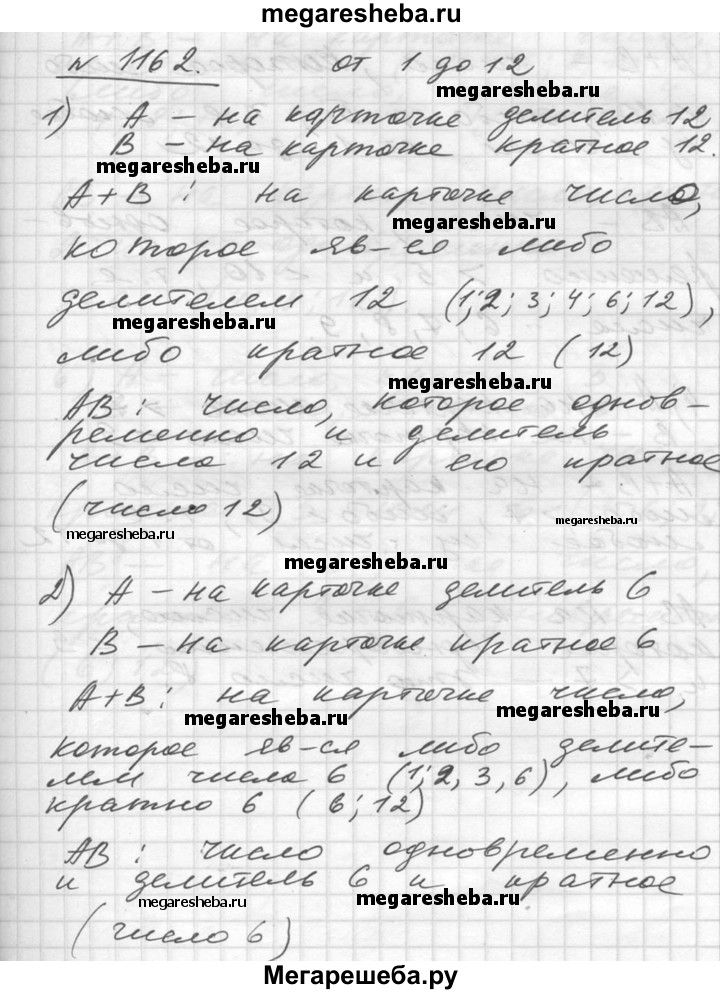 megaresheba.ru
N 1162. от 1 до 12
1) А – на карточке делитель 12
В – на карточке кратное 12.
megaresheba.ru
А+В: на карточке число,
megaresheba.ru
которое яв-ся либо
делителем 12 (1; 2; 3; 4; 6; 12),
megaresheba.ru
либо кратное 12 (12)
megaresheba.ru
АВ: число, которое однов-
ременно и делитель
числа 12 и его кратное
(число 12)
megaresheba.ru
megaresheba.ru
2) А – на карточке делитель 6
В – на карточке кратное 6
А+В: на карточке число,
megaresheba.ru
megaresheba.ru
которое яв-ся либо делите-
лем числа 6 (1; 2, 3, 6), либо
кратно 6 (6; 12)
АВ: число одновременно
и делитель 6 и кратное
megaresheba.ru
megaresheba.ru
(число 6)
Мегарешеба.ру